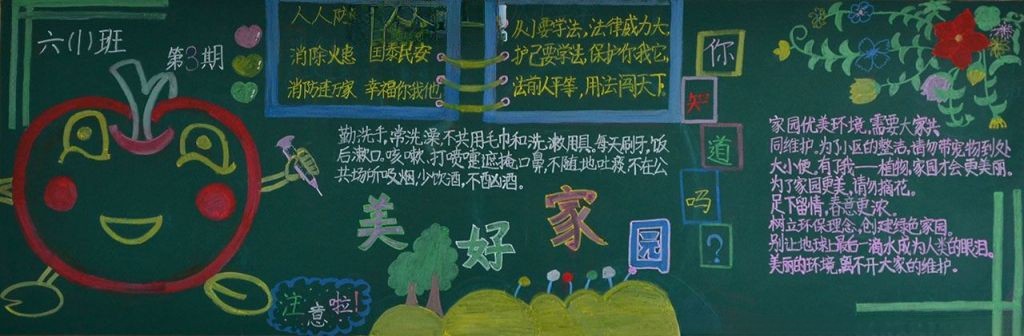 六(1)班
第3期
人人防 人人
消除火患 国泰民安
消防连万家 幸福你我他
从小要学法,法律威力大,
护己要学法,保护你我它,
法前人平等,用法闯天下。
勤洗手,常洗澡,不共用毛巾和洗漱用具,每天刷牙,饭
后漱口,咳嗽、打喷嚏遮掩口鼻,不随地吐痰,不在公
共场所吸烟,少饮酒,不酗酒。
美好家园
注意啦!
你知道吗?
家园优美环境,需要大家共
同维护,为了小区的整洁,请勿带宠物到处
大小便,有了我——植物,家园才会更美丽。
为了家园更美,请勿摘花。
足下留情,春意更浓。
树立环保理念,创建绿色家园。
别让地球上最后一滴水成为人类的眼泪。
美丽的环境,离不开大家的维护。